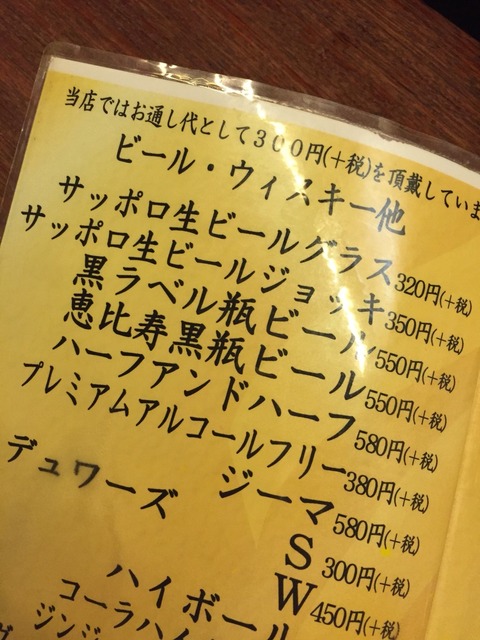 当店ではお通し代として300円(+税)を頂戴していま
ビール・ウィスキー他
サッポロ生ビールグラス320円(+税)
サッポロ生ビールジョッキ350円(+税)
黒ラベル瓶ビール550円(+税)
恵比寿黒瓶ビール550円(+税)
ハーフアンドハーフ580円(+税)
プレミアムアルコールフリー380円(+税)
ジーマ580円(+税)
デュワーズ S 300円(+税)
W 450円(+税)
ハイボール
コーラハイ
ジンジ